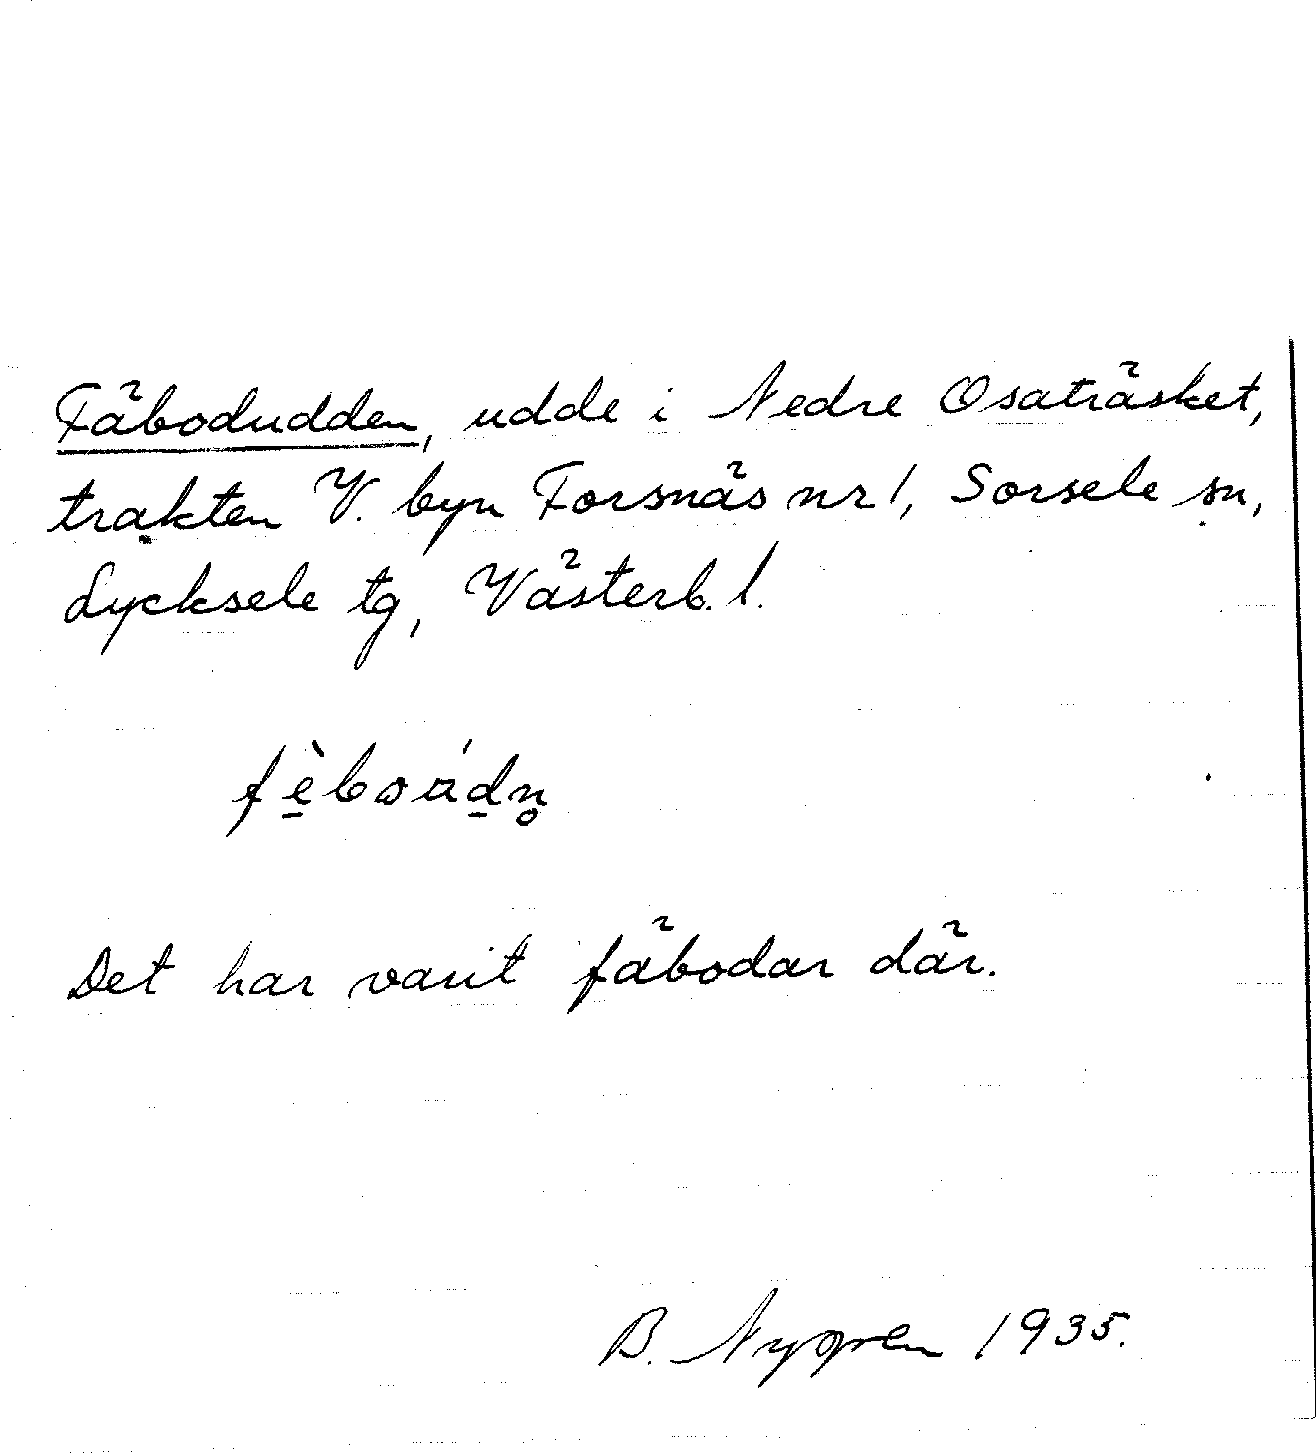 Fäbodudden, udde i Nedre Osaträsket,
trakten V. byn Forsnäs nr 1, Sorsele sn,
Lycksele tg, Västerb. l.
Det har varit fäbodar där.
B. Nygren 1935.